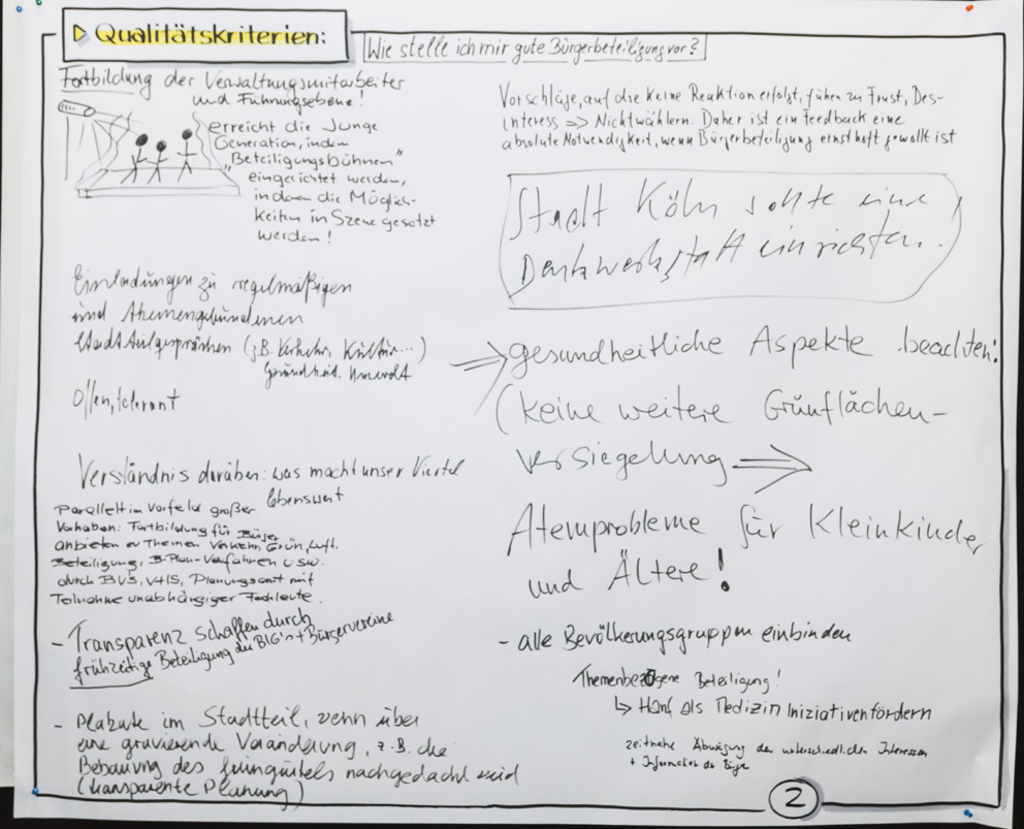 Qualitätskriterien:
Wie stelle ich mir gute Bürgerbeteiligung vor?
Fortbildung der Verwaltungsmitarbeiter
und Führungsebene!
erreicht die Junge
Generation, indem
"Beteiligungsbühnen"
eingerichtet werden,
in denen die Möglich-
keiten in Szene gesetzt
werden!
Einladungen zu regelmäßigen
und themengebundenen
Stadtteilgesprächen (z.B. Verkehr, Kultur...)
Gesundheit. Umwelt
Offen, tolerant
Verständnis darüber: was macht unser Viertel
lebenswert
Parallel im Vorfeld großer
Vorhaben: Fortbildung für Bürger
anbieten zu Themen Verkehr, Grün, Luft.
Beteiligung, B-Plan-Verfahren usw.
durch BVS, VHS, Planungsamt mit
Teilnahme unabhängiger Fachleute.
- Transparenz schaffen durch
frühzeitige Beteiligung der BIG's + Bürgervereine
- Plakate im Stadtteil, wenn über
eine gravierende Veränderung, z.B. die
Bebauung des Grüngürtels nachgedacht wird
(transparente Planung)
Vorschläge, auf die keine Reaktion erfolgt, führen zu Frust, Des-
interess => Nichtwählern. Daher ist ein Feedback eine
absolute Notwendigkeit, wenn Bürgerbeteiligung ernsthaft gewollt ist
Stadt Köln sollte eine
Denkwerkstatt einrichten.
=> gesundheitliche Aspekte beachten!
(keine weitere Grünflächen-
versiegelung =>
Atemprobleme für Kleinkinder
und Ältere!
- alle Bevölkerungsgruppen einbinden
Themenbezogene Beteiligung!
↳ Hanf als Medizin Initiativen fördern
zeitnahe Abwägung der unterschiedlichen Interessen
+ Information der Bürger
2